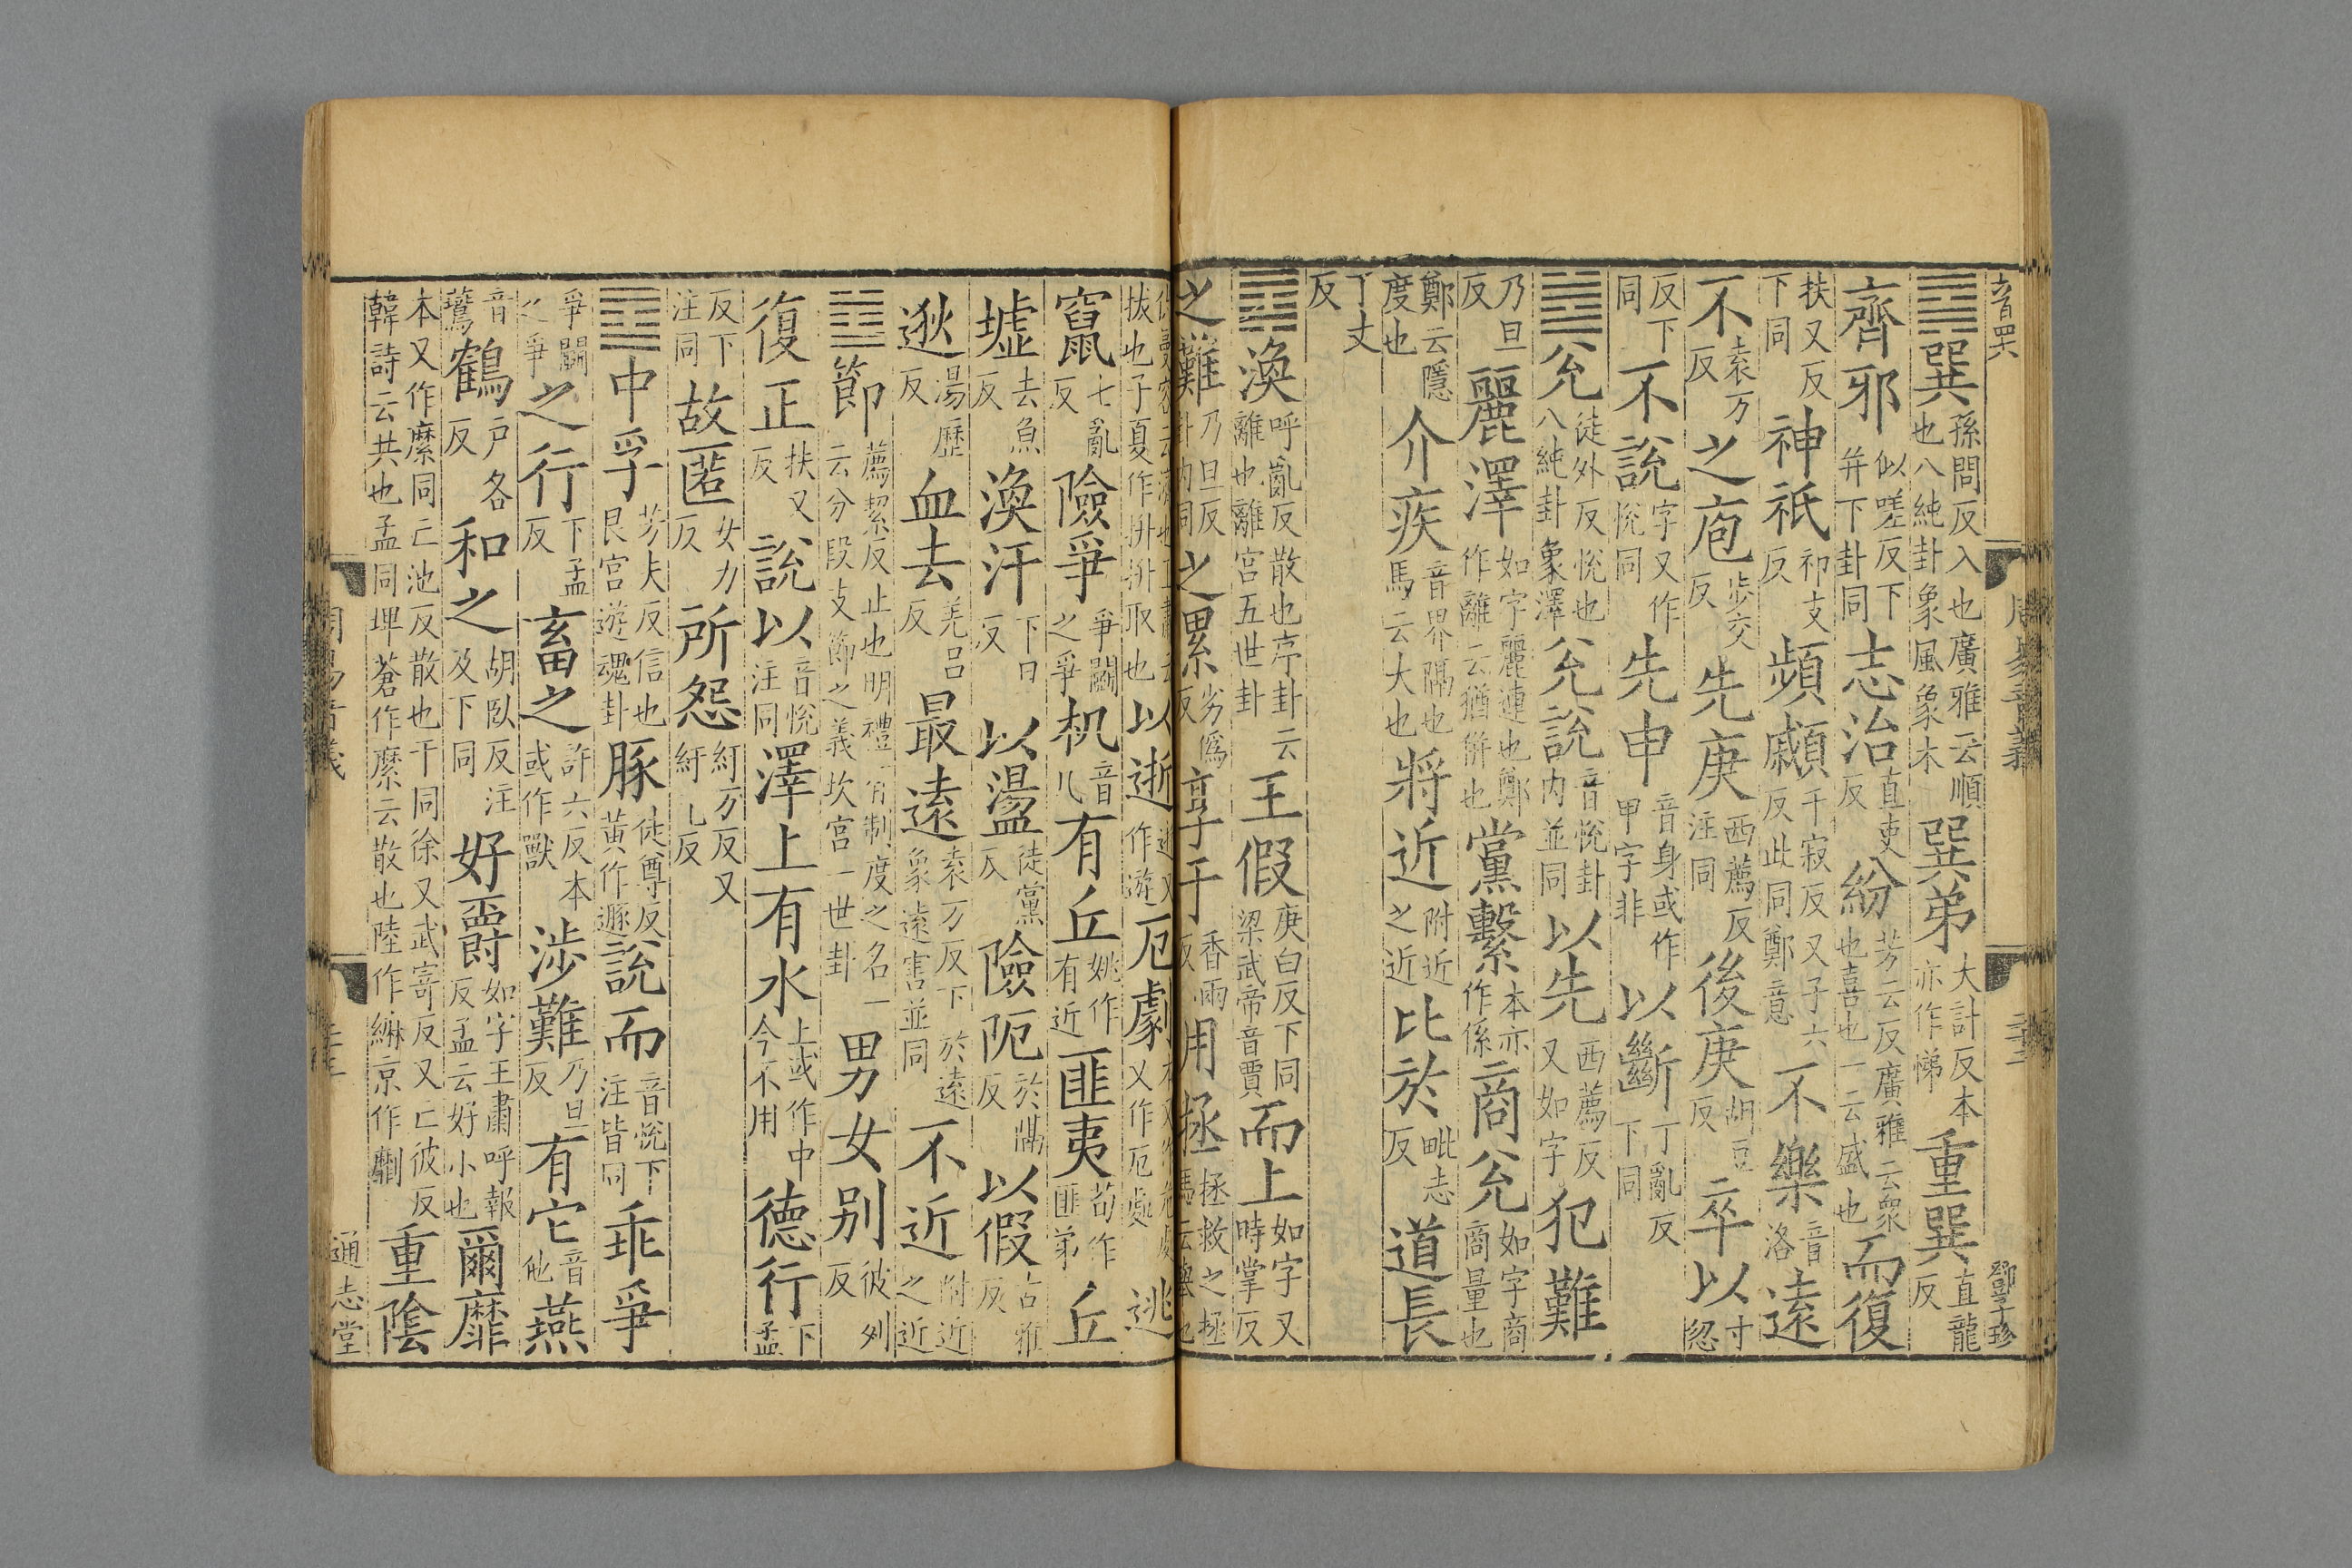 ䷸巽孫問反入也廣雅云順也八純卦象風象木巽弟大計反本亦作悌重巽直龍反
齊邪似嗟反下并下卦同志治直吏反紛芳云反廣雅云衆也喜也一云盛也而復
扶又反下同神祇祁支反頻顣千寂反又子六反此同鄭意不樂音洛遠
不袁万反之庖步交反先庚西薦反注同後庚胡豆反卒以寸忽
反下同不說字又作悅同先申音身或作甲字非以斷丁亂反下同
䷹兊徒外反悅也八純卦象澤兊說音悅卦内並同以先西薦反又如字犯難
乃旦反麗澤如字麗連也鄭作離云猶併也黨繫本亦作係商兊如字商商量也
鄭云隱度也介疾音界隔也馬云大也將近附近之近比於毗志反道長
丁丈反
䷺渙呼亂反散也序卦云離也離宮五世卦王假庚白反下同梁武帝音賈而上如字又時掌反
之難乃旦反卦内同之累劣僞反享于香兩反用拯拯救之拯馬云舉也
拔也子夏作抍抍取也以逝逝又作遊厄劇又作厄處逃
竄七亂反險爭爭鬭之爭机音几有丘姚作有近匪夷荀作匪弟丘
墟去魚反渙汗下旦反以盪徒黨反險阨於隔反以假古雅反
逖湯歷反血去羌呂反最遠袁万反下於遠象遠害並同不近附近之近
䷻節薦絜反止也明禮有制度之名一云分段支節之義坎宮一世卦男女别彼列反
復正扶又反說以音悅注同澤上有水上或作中今不用德行下孟
反下注同故匿女力反所怨紆万反又紆乚反
䷼中孚芳夫反信也艮宮遊魂卦豚徒尊反黃作遯說而音悅下注皆同乖爭
爭鬭之爭之行下孟反畜之許六反本或作獸涉難乃旦反有它音他燕
音鷰鶴戶各反和之胡臥反注及下同好爵如字王肅呼報反孟云好小也爾靡
本又作縻同亡池反散也干同徐又武寄反又亡彼反韓詩云共也孟同埤蒼作縻云散也陸作𦆞京作劘重陰
周易音義
通志堂